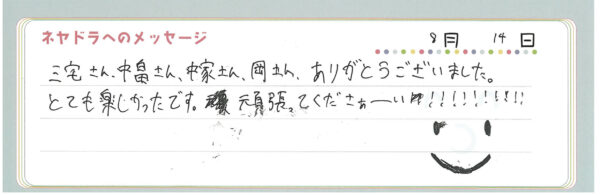 ネヤドラへのメッセージ
8月 14日
三宅さん、中畠さん、中家さん、岡さん、ありがとうございました。
とても楽しかったです。頑張ってくださぁーい!!!!!!!!!!